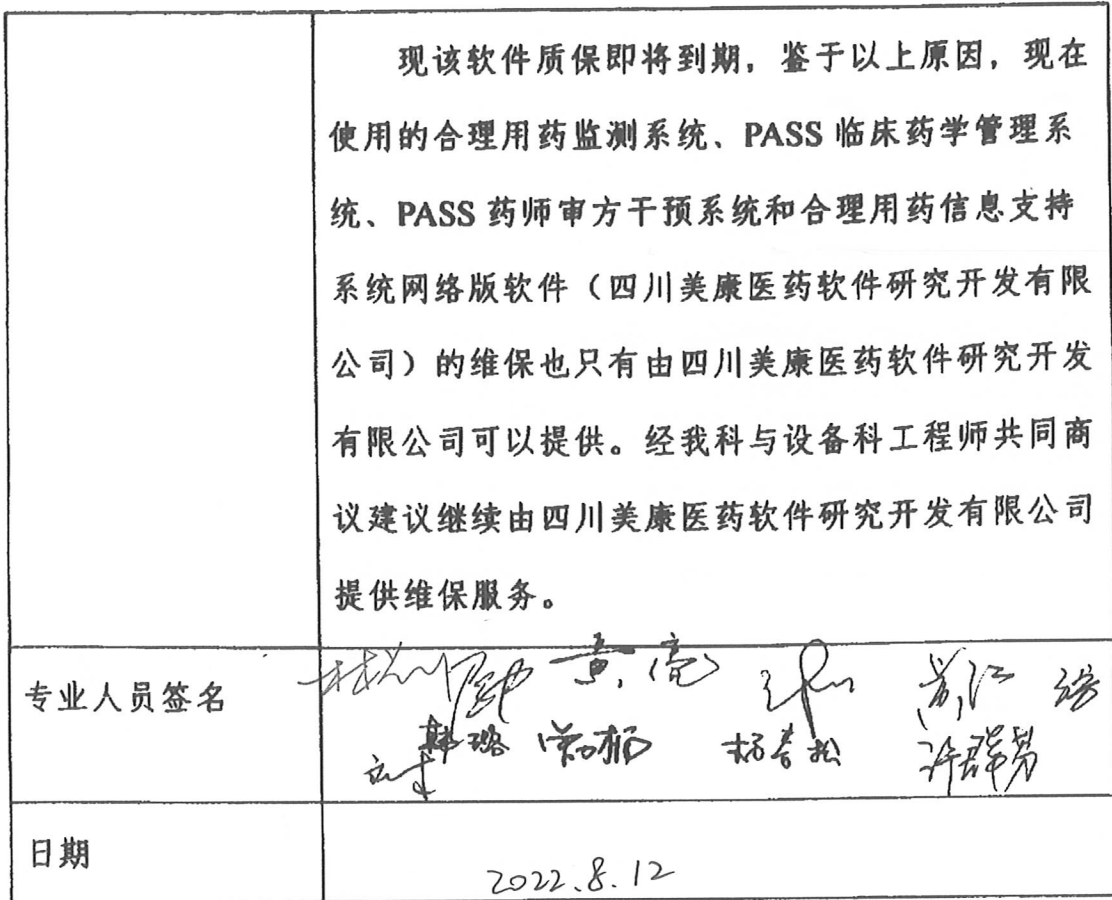 现该软件质保即将到期，鉴于以上原因，现在
使用的合理用药监测系统、PASS 临床药学管理系
统、PASS 药师审方干预系统和合理用药信息支持
系统网络版软件（四川美康医药软件研究开发有限
公司）的维保也只有由四川美康医药软件研究开发
有限公司可以提供。经我科与设备科工程师共同商
议建议继续由四川美康医药软件研究开发有限公司
提供维保服务。
专业人员签名
黄亮
韩璐 杨春松
日期
2022.8.12